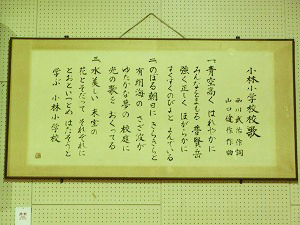 小林小学校校歌
西川武治作詞
山口健作作曲
一、青空高く はれやかに
みんなをまもる 普賢岳
強く正しく ほがらかに
すくすくのびよと よんでいる
二、のぼる朝日に きらきらと
有明海の さざ波が
ゆたかな夢の 校庭に
光の歌を おくってる
三、水美しい
花とそだって それぞれに
とおといつとめ はたそうと
学ぶ 小林小学校